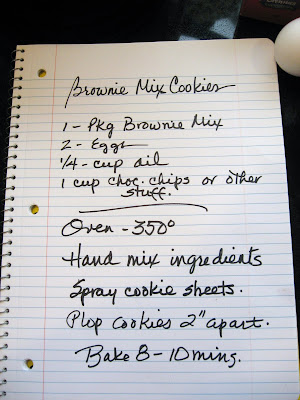 Brownie Mix Cookies
1 - Pkg Brownie Mix
2 - Eggs
1/4 - cup oil
1 cup choc. chips or other
stuff.
Oven - 350°
Hand mix ingredients
Spray cookie sheets.
Plop cookies 2" apart.
Bake 8 - 10 mins.